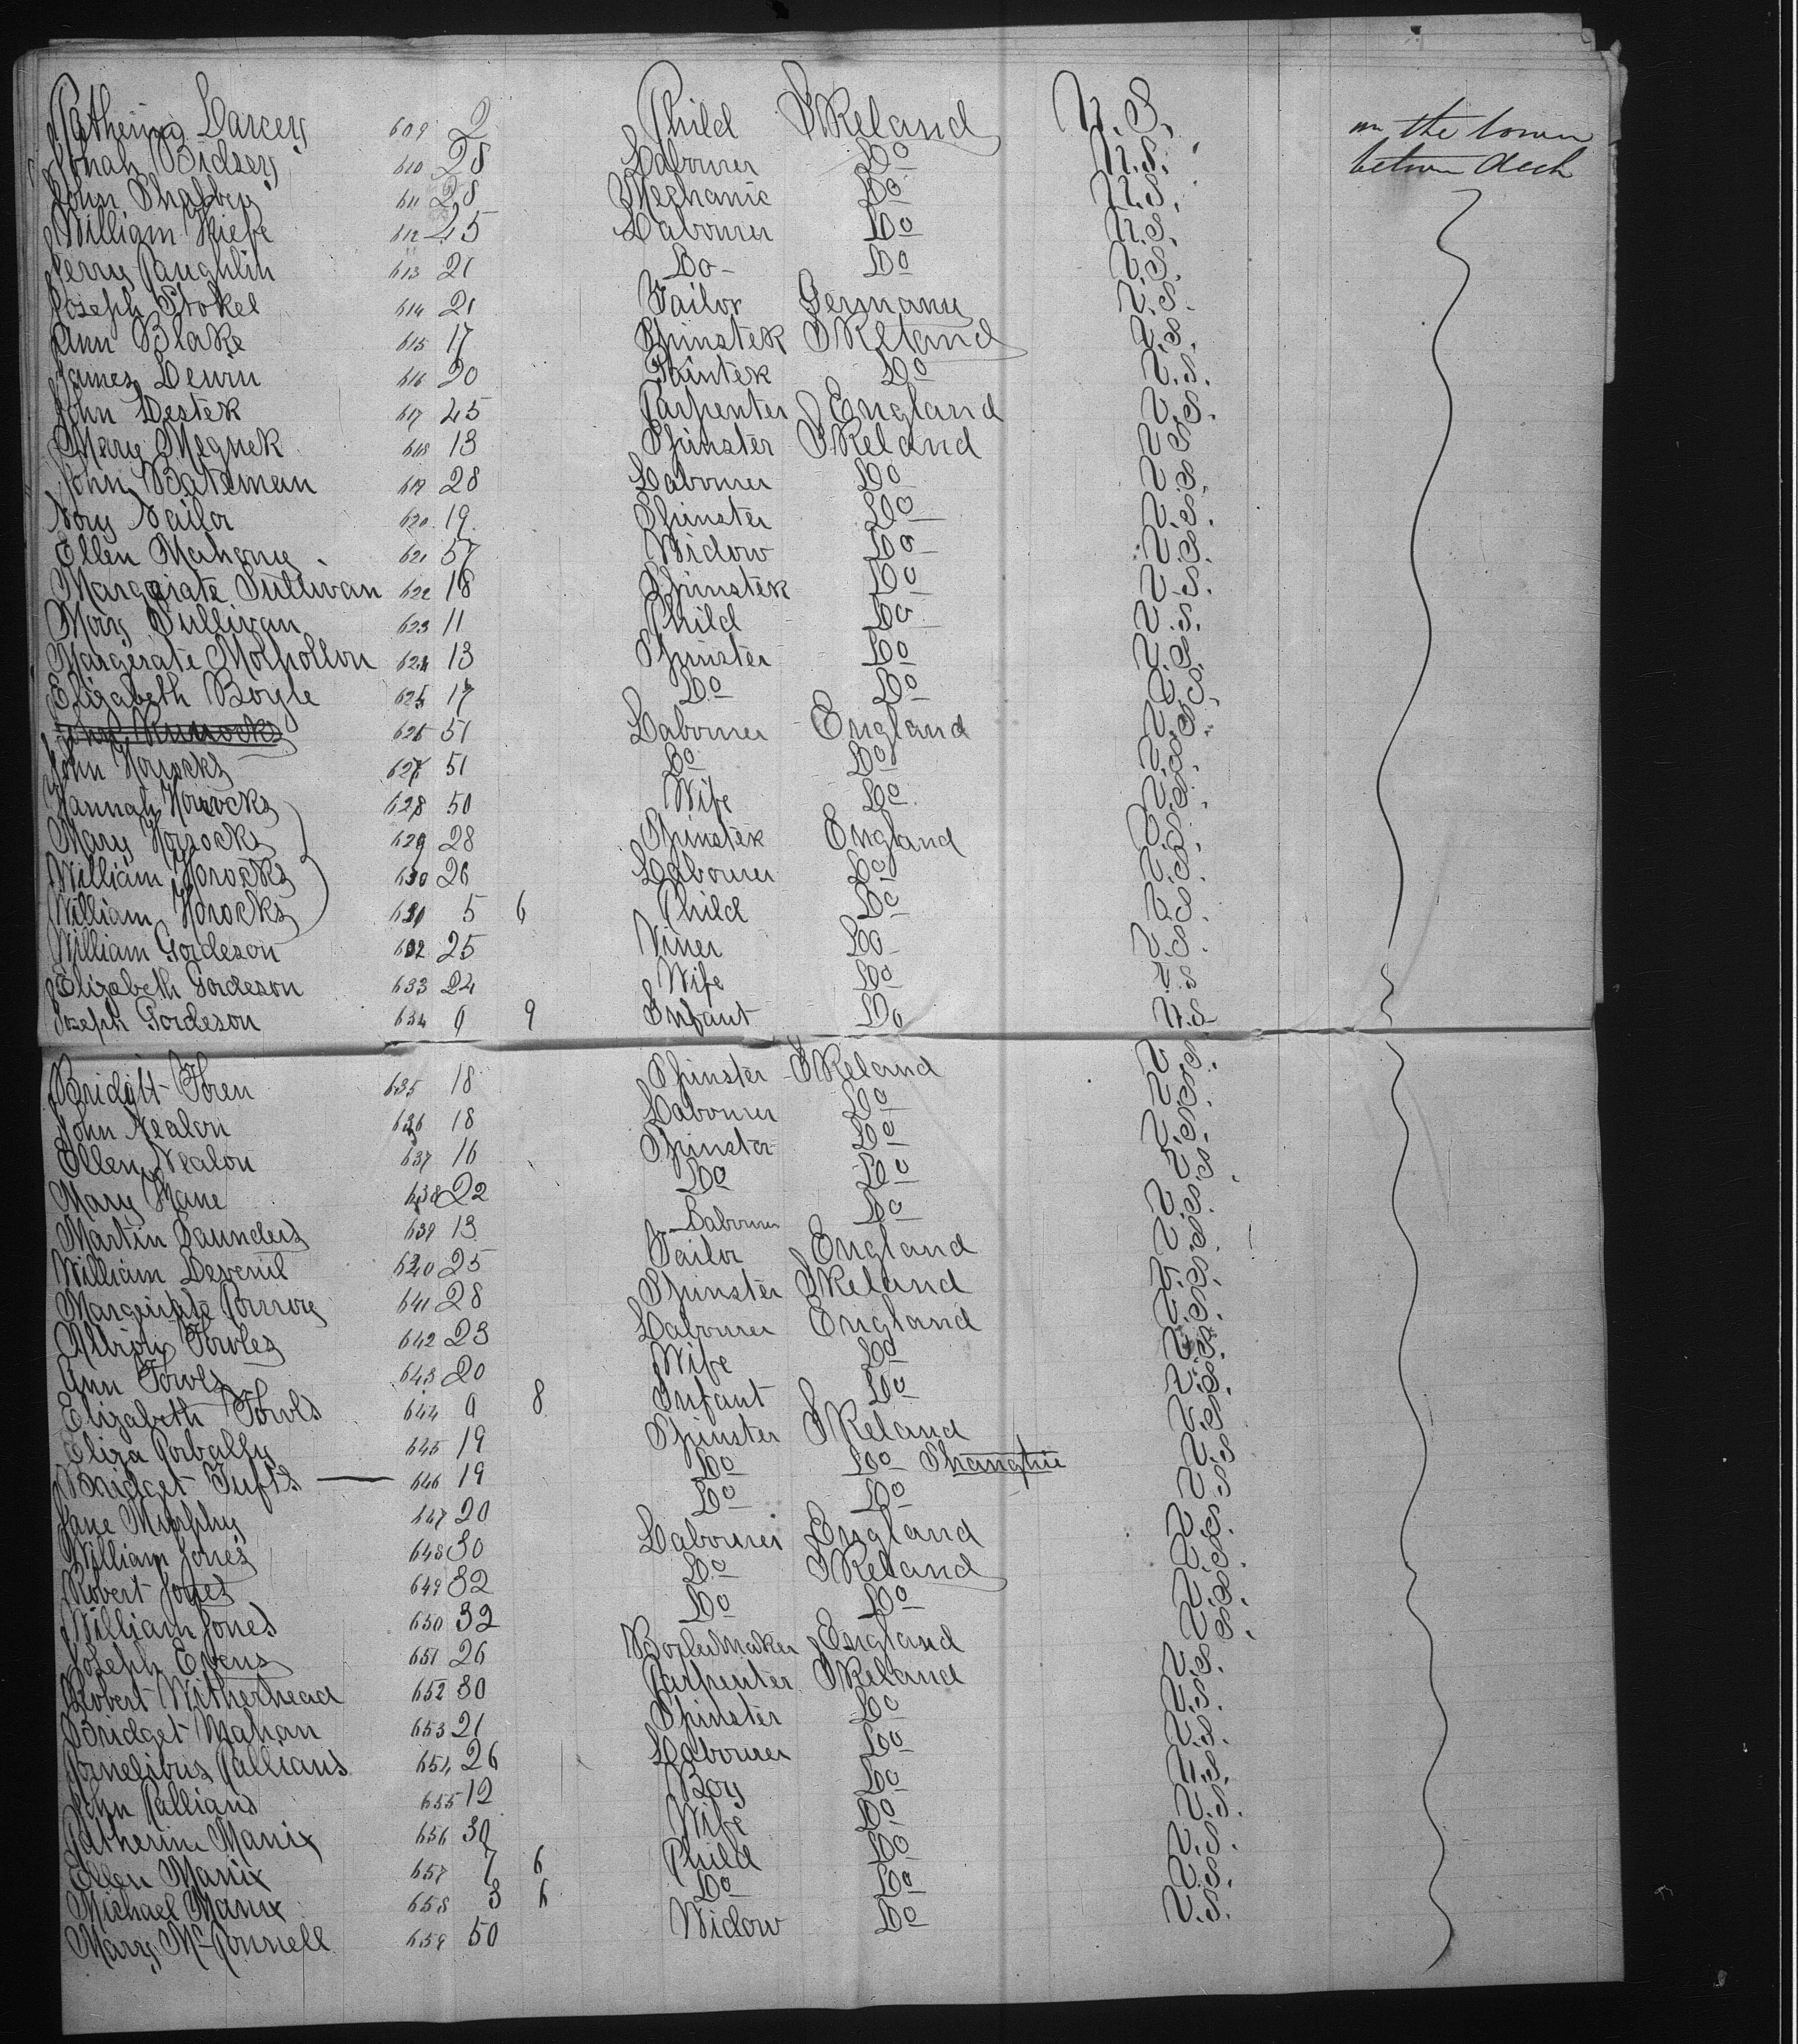 Catherine Darcey 609 2 Child IReland U.S. on the lower
Bidsey 610 28 Labourer Do U.S. between deck
John 611 28 Mechanic Do U.S.
William Kiefe 612 25 Labourer Do U.S.
Jerry Caughlin 613 21 Do Do U.S.
Joseph Stokel 614 21 Tailor Germany U.S.
Ann Blake 615 17 Spinster IReland U.S.
James Deurn 616 20 Do U.S.
John Dester 617 45 Carpenter England U.S.
Mary Megner 618 13 Spinster IReland U.S.
John Bateman 619 28 Labourer Do U.S.
Nory Nailor 620 19 Spinster Do U.S.
Ellen Mahony 621 57 Widow Do U.S.
Margarate Sullivan 622 18 Spinster Do U.S.
Mary Sullivan 623 11 Child Do U.S.
Margerate 624 13 Spinster Do U.S.
Elizabeth Boyle 625 17 Do Do U.S.
John 626 51 Labourer England U.S.
John Horrocks 627 51 Do Do U.S.
Hannah Horrocks 628 50 Wife Do U.S.
Mary Horrocks 629 28 Spinster England U.S.
William Horocks 630 26 Labourer Do U.S.
William Horocks 631 5 6 Child Do U.S.
William Gordeson 632 25 Do U.S.
Elizabeth Gordeson 633 24 Wife Do U.S.
Joseph Gordeson 634 0 9 Infant Do U.S.
Bridgtt Foren 635 18 Spinster IReland U.S.
John Nealon 636 18 Labourer Do U.S.
Ellen Nealon 637 16 Spinster Do U.S.
Mary Kane 638 22 Do Do U.S.
Martin Saunders 639 13 Labourer Do U.S.
William Devenil 640 25 Tailor England U.S.
641 28 Spinster IReland U.S.
Albion Fowles 642 23 Labourer England U.S.
Ann Fowls 643 20 Wife Do U.S.
Elizabeth Fowls 644 0 8 Infant Do U.S.
Eliza Corbally 645 19 Spinster IReland U.S.
Bridget Tufts 646 19 Do Do U.S.
Jane Murphy 647 20 Do Do U.S.
William Jones 648 30 Labourer England U.S.
Robert Jones 649 32 Do IReland U.S.
William Jones 650 32 Do Do U.S.
Joseph Evens 651 26 Boilermaker England U.S.
Robert Witherhead 652 30 Carpenter IReland U.S.
Bridget Mahan 653 21 Spinster Do U.S.
Cornelious Callians 654 26 Labourer Do U.S.
John Callians 655 12 Boy Do U.S.
Catherine Manix 656 30 Wife Do U.S.
Ellen Manix 657 7 6 Child Do U.S.
Michael Manix 658 3 6 Do Do U.S.
Mary McConnell 659 50 Widow Do U.S.